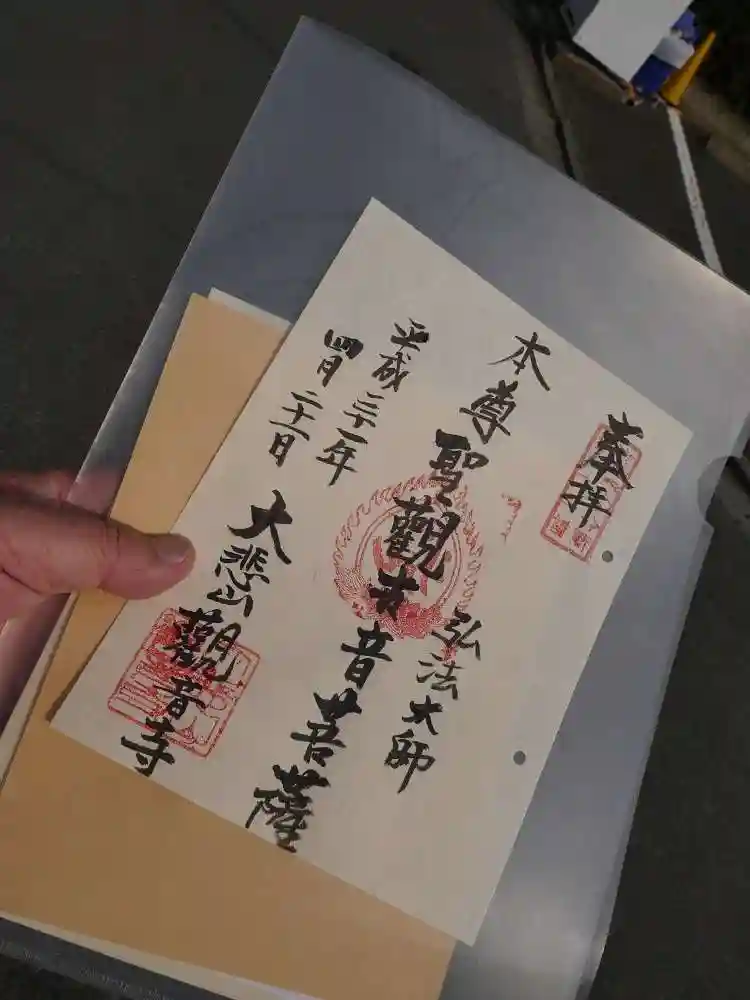 奉拝
弘法大師
本尊聖觀世音菩薩
平成三十一年
四月二十一日
大悲山觀音寺